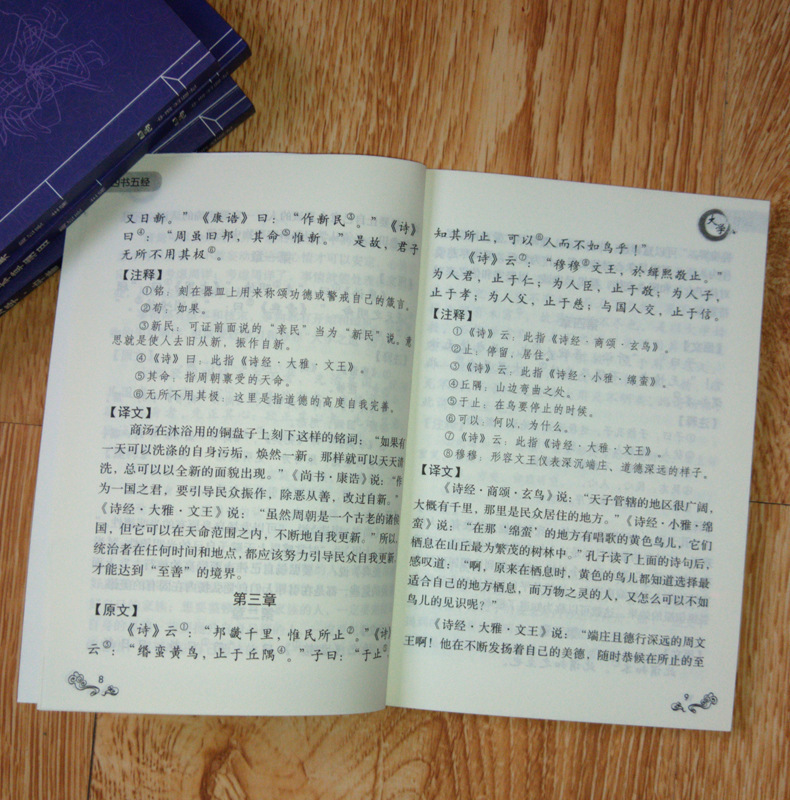 四书五经
又日新。”《康诰》曰：“作新民③。”《诗》
曰④：“周虽旧邦，其命⑤惟新。”是故，君子
无所不用其极⑥。
【注释】
①铭：刻在器皿上用来称颂功德或警戒自己的箴言。
②苟：如果。
③新民：可证前面说的“亲民”当为“新民”说。意
思就是使人去旧从新，振作自新。
④《诗》曰：此指《诗经·大雅·文王》。
⑤其命：指周朝禀受的天命。
⑥无所不用其极：这里是指道德的高度自我完善。
【译文】
商汤在沐浴用的铜盘子上刻下这样的铭词：“如果有
一天可以洗涤的自身污垢，焕然一新。那样就可以天天清
洗，总可以以全新的面貌出现。”《尚书·康诰》说：“作
为一国之君，要引导民众振作，除恶从善，改过自新。”
《诗经·大雅·文王》说：“虽然周朝是一个古老的诸侯
国，但它可以在天命范围之内，不断地自我更新。”所以，
统治者在任何时间和地点，都应该努力引导民众自我更新，
才能达到“至善”的境界。
第三章
【原文】
《诗》云①：“邦畿千里，惟民所止②。”《诗》
云③：“缗蛮黄鸟，止于丘隅④。”子曰：“于止⑤，
8
大学
知其所止，可以⑥人而不如鸟乎！”
《诗》云⑦：“穆穆⑧文王，於缉熙敬止。”
为人君，止于仁；为人臣，止于敬；为人子，
止于孝；为人父，止于慈；与国人交，止于信。
【注释】
①《诗》云：此指《诗经·商颂·玄鸟》。
②止：停留，居住。
③《诗》云：此指《诗经·小雅·绵蛮》。
④丘隅：山边弯曲之处。
⑤于止：在鸟要停止的时候。
⑥可以：何以，为什么。
⑦《诗》云：此指《诗经·大雅·文王》。
⑧穆穆：形容文王仪表深沉端庄、道德深远的样子。
【译文】
《诗经·商颂·玄鸟》说：“天子管辖的地区很广阔，
大概有千里，那里是民众居住的地方。”《诗经·小雅·绵
蛮》说：“在那‘绵蛮’的地方有唱歌的黄色鸟儿，它们
栖息在山丘最为繁茂的树林中。”孔子读了上面的诗句后，
感叹道：“啊，原来在栖息时，黄色的鸟儿都知道选择最
适合自己的地方栖息，而万物之灵的人，又怎么可以不如
鸟儿的见识呢？”
《诗经·大雅·文王》说：“端庄且德行深远的周文
王啊！他在不断发扬着自己的美德，随时恭候在所止的至
9